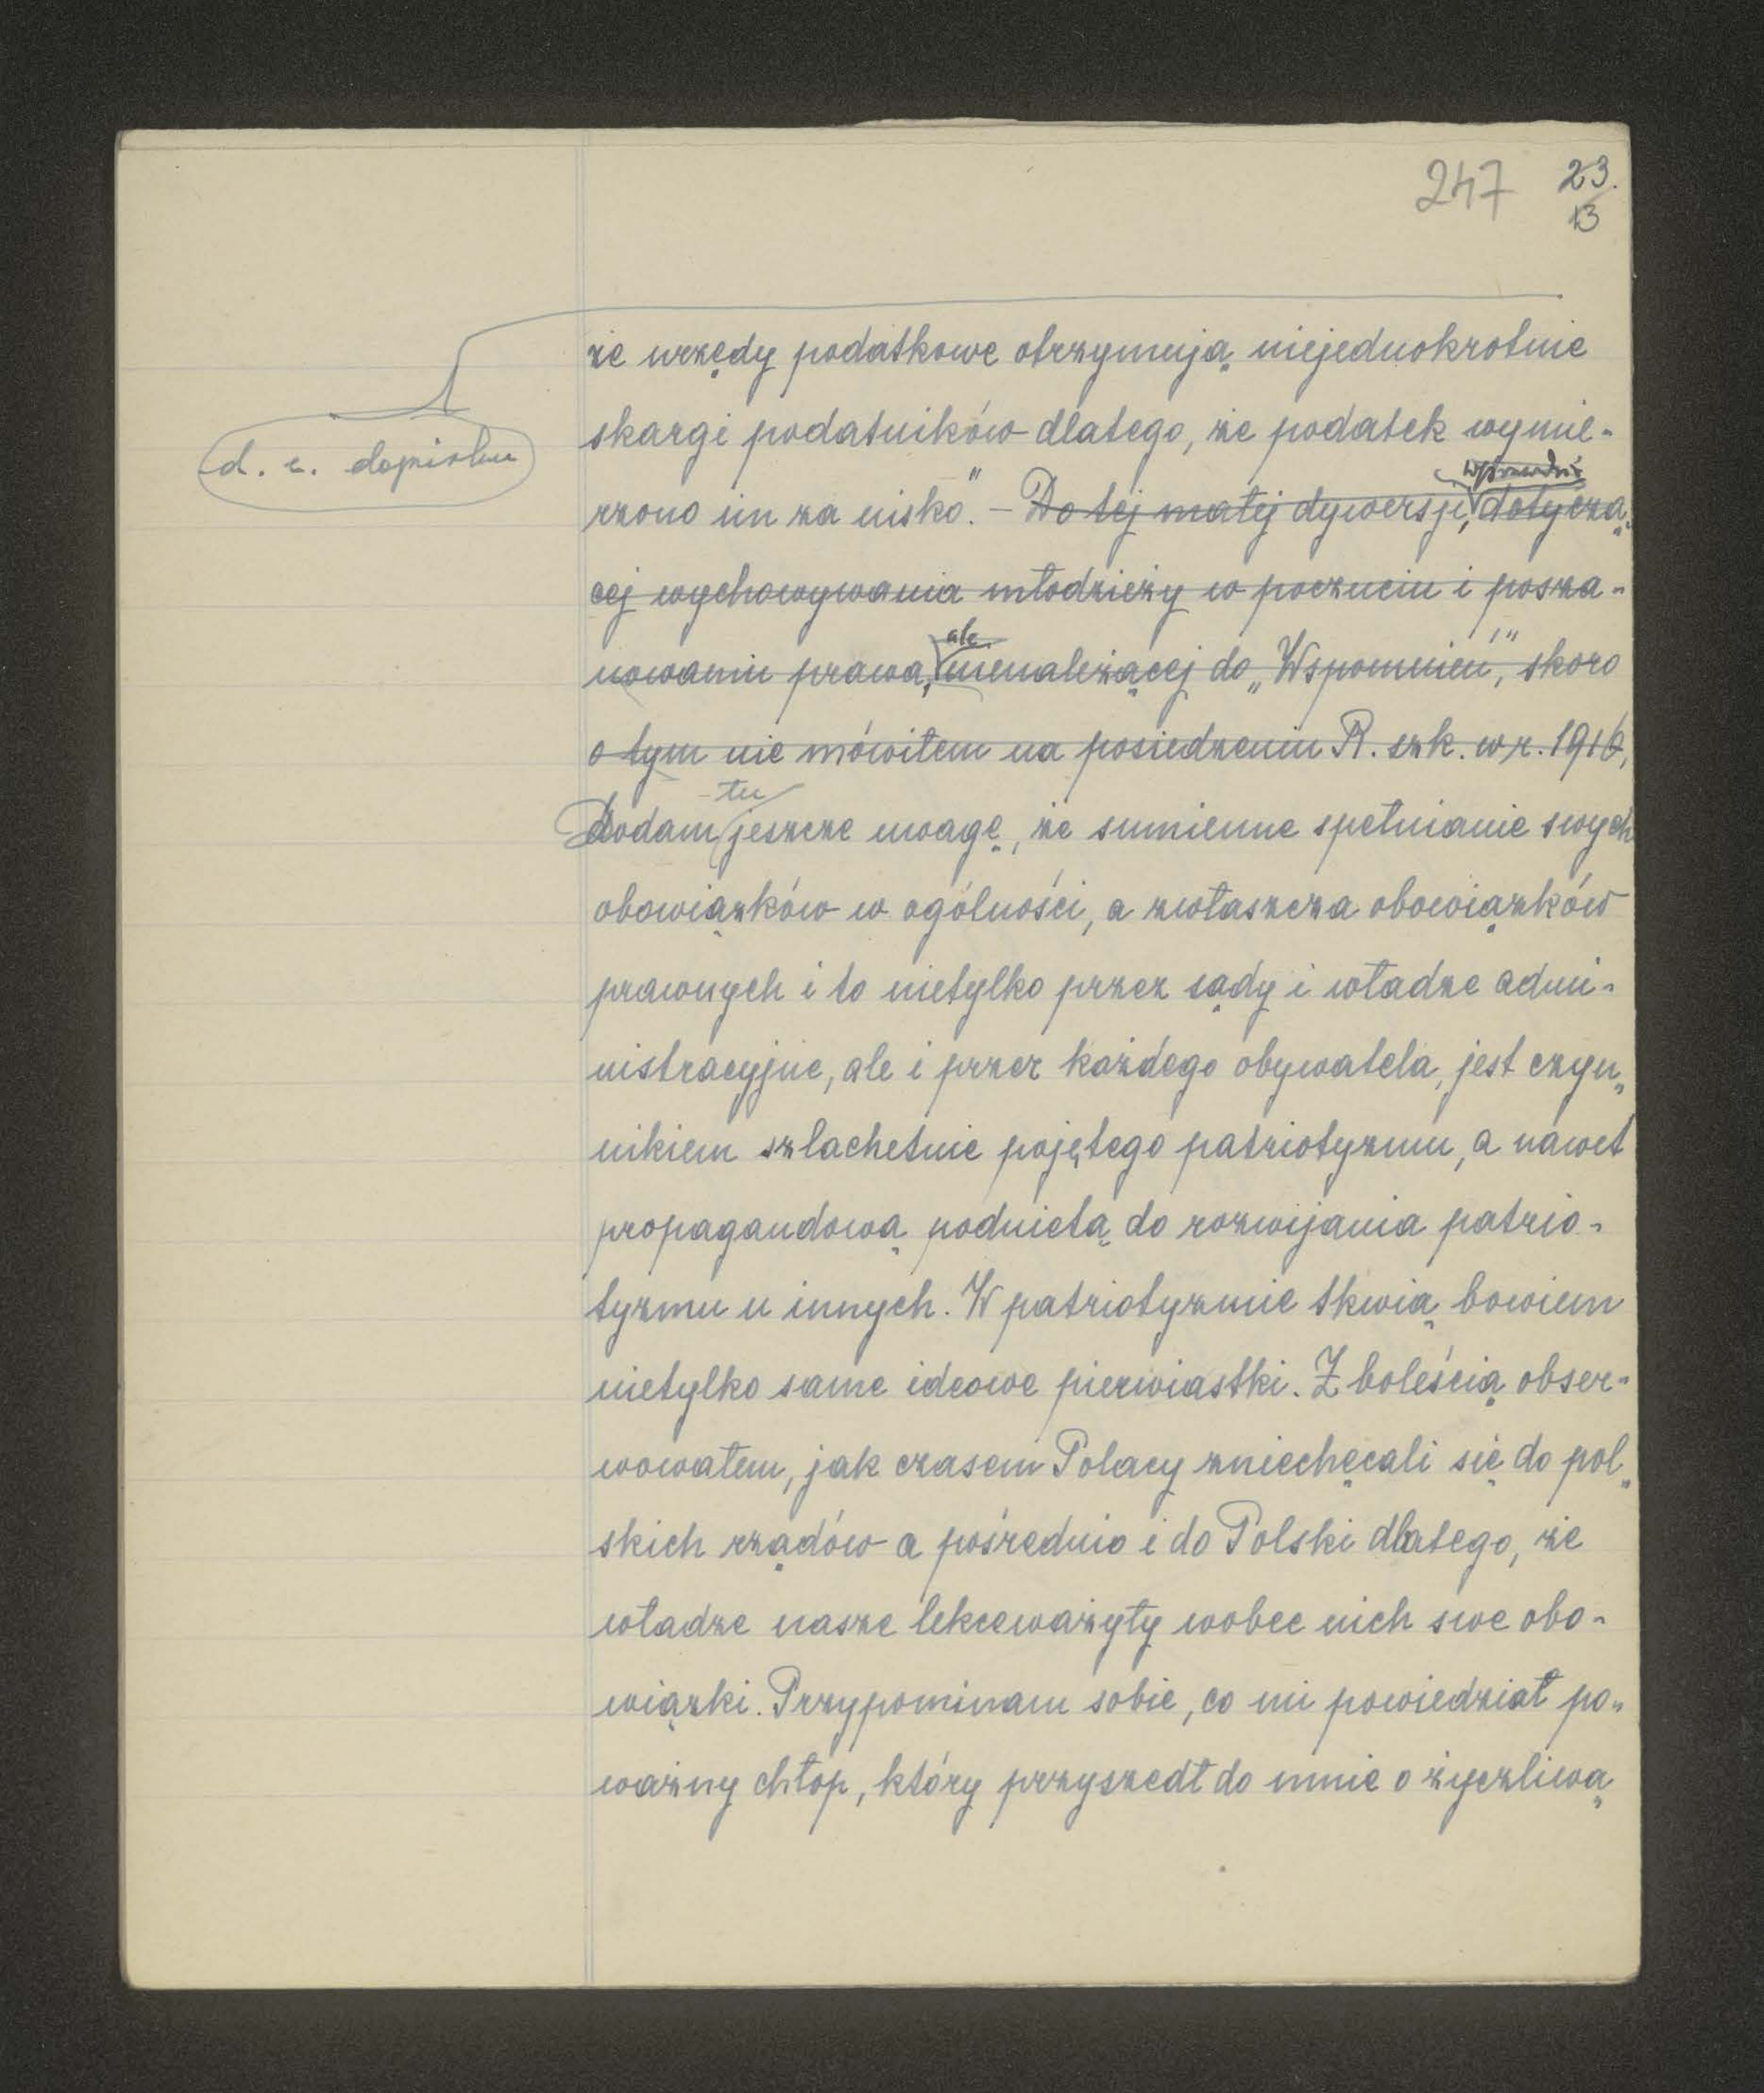 247 23.
13
że urzędy podatkowe otrzymują niejednokrotnie
d. c. dopisku
skargi podatników dlatego, że podatek wymie-
wprawdzie
rzono im za nisko." – Do tej małej dywersji, dotyczą-
cej wychowywania młodzieży w poczuciu i posza-
ale
nowaniu prawa, nienależącej do „Wspomnień", skoro
o tym nie mówiłem na posiedzeniu R. szk. w r. 1916,
tu
Dodam jeszcze uwagę, że sumienne spełnianie swych
obowiązków w ogólności, a zwłaszcza obowiązków
prawnych i to nietylko przez sądy i władze admi-
nistracyjne, ale i przez każdego obywatela, jest czyn-
nikiem szlachetnie pojętego patriotyzmu, a nawet
propagandową podnietą do rozwijania patrio-
tyzmu u innych. W patriotyzmie tkwią bowiem
nietylko same ideowe pierwiastki. Z boleścią obser-
wowałem, jak czasem Polacy zniechęcali się do pol-
skich rządów a pośrednio i do Polski dlatego, że
władze nasze lekceważyły wobec nich swe obo-
wiązki. Przypominam sobie, co mi powiedział po-
ważny chłop, który przyszedł do mnie o życzliwą